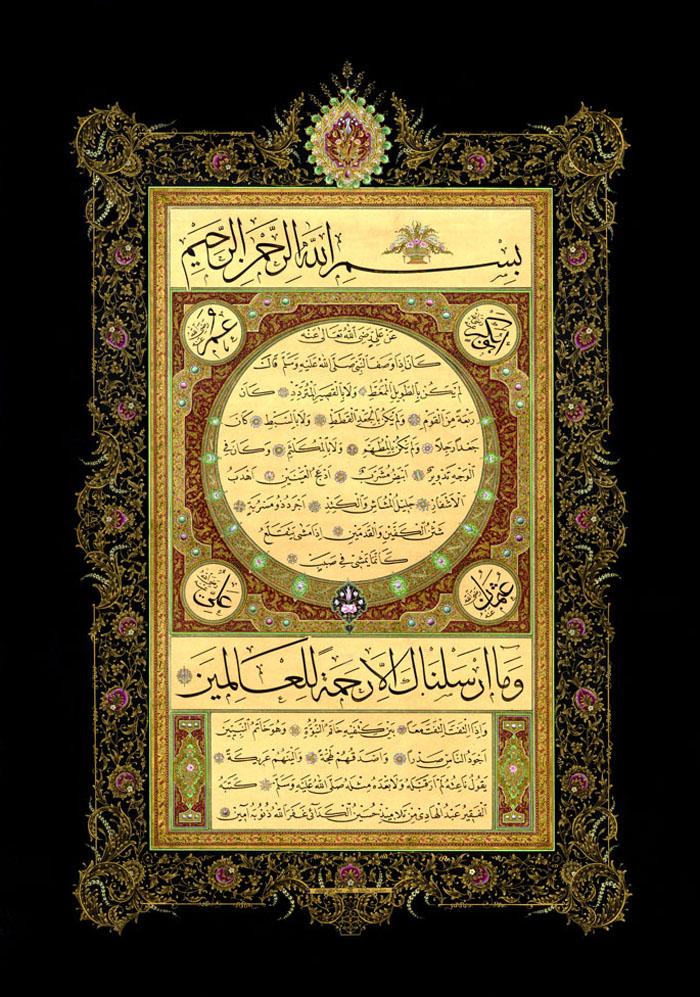 بِسْمِ اللهِ الرَّحْمٰنِ الرَّحِيْمِ
عَنْ عَلِيٍّ رَضِيَ اللهُ تَعَالٰى عَنْهُ
كَانَ إِذَا وَصَفَ النَّبِيَّ صَلَّى اللهُ عَلَيْهِ وَسَلَّمَ قَالَ
لَمْ يَكُنْ بِالطَّوِيلِ الْمُمَّغِطِ وَلَا بِالْقَصِيرِ الْمُتَرَدِّدِ كَانَ
رَبْعَةً مِنَ الْقَوْمِ وَلَمْ يَكُنْ بِالْجَعْدِ الْقَطَطِ وَلَا بِالسَّبِطِ كَانَ
جَعْدًا رَجِلًا وَلَمْ يَكُنْ بِالْمُطَهَّمِ وَلَا بِالْمُكَلْثَمِ وَكَانَ فِي
الْوَجْهِ تَدْوِيرٌ أَبْيَضُ مُشْرَبٌ أَدْعَجُ الْعَيْنَيْنِ أَهْدَبُ
الْأَشْفَارِ جَلِيلُ الْمُشَاشِ وَالْكَتَدِ أَجْرَدُ ذُو مَسْرُبَةٍ
شَثْنُ الْكَفَّيْنِ وَالْقَدَمَيْنِ إِذَا مَشٰى يَتَقَلَّعُ
كَأَنَّمَا يَمْشِي فِي صَبَبٍ
عُمَر
عُثْمَان
عَلِي
وَمَا أَرْسَلْنَاكَ إِلَّا رَحْمَةً لِلْعَالَمِينَ
وَإِذَا الْتَفَتَ الْتَفَتَ مَعًا بَيْنَ كَتِفَيْهِ خَاتَمُ النُّبُوَّةِ وَهُوَ خَاتَمُ النَّبِيِّينَ
أَجْوَدُ النَّاسِ صَدْرًا وَأَصْدَقُهُمْ لَهْجَةً وَأَلْيَنُهُمْ عَرِيكَةً
يَقُولُ نَاعِتُهُ لَمْ أَرَ قَبْلَهُ وَلَا بَعْدَهُ مِثْلَهُ صَلَّى اللهُ عَلَيْهِ وَسَلَّمَ كَتَبَهُ
الْفَقِيرُ عَبْدُ الْهَادِي مِنْ تَلَامِيذِ حُسَيْنِ غَفَرَ اللهُ ذُنُوبَهُ آمِينَ